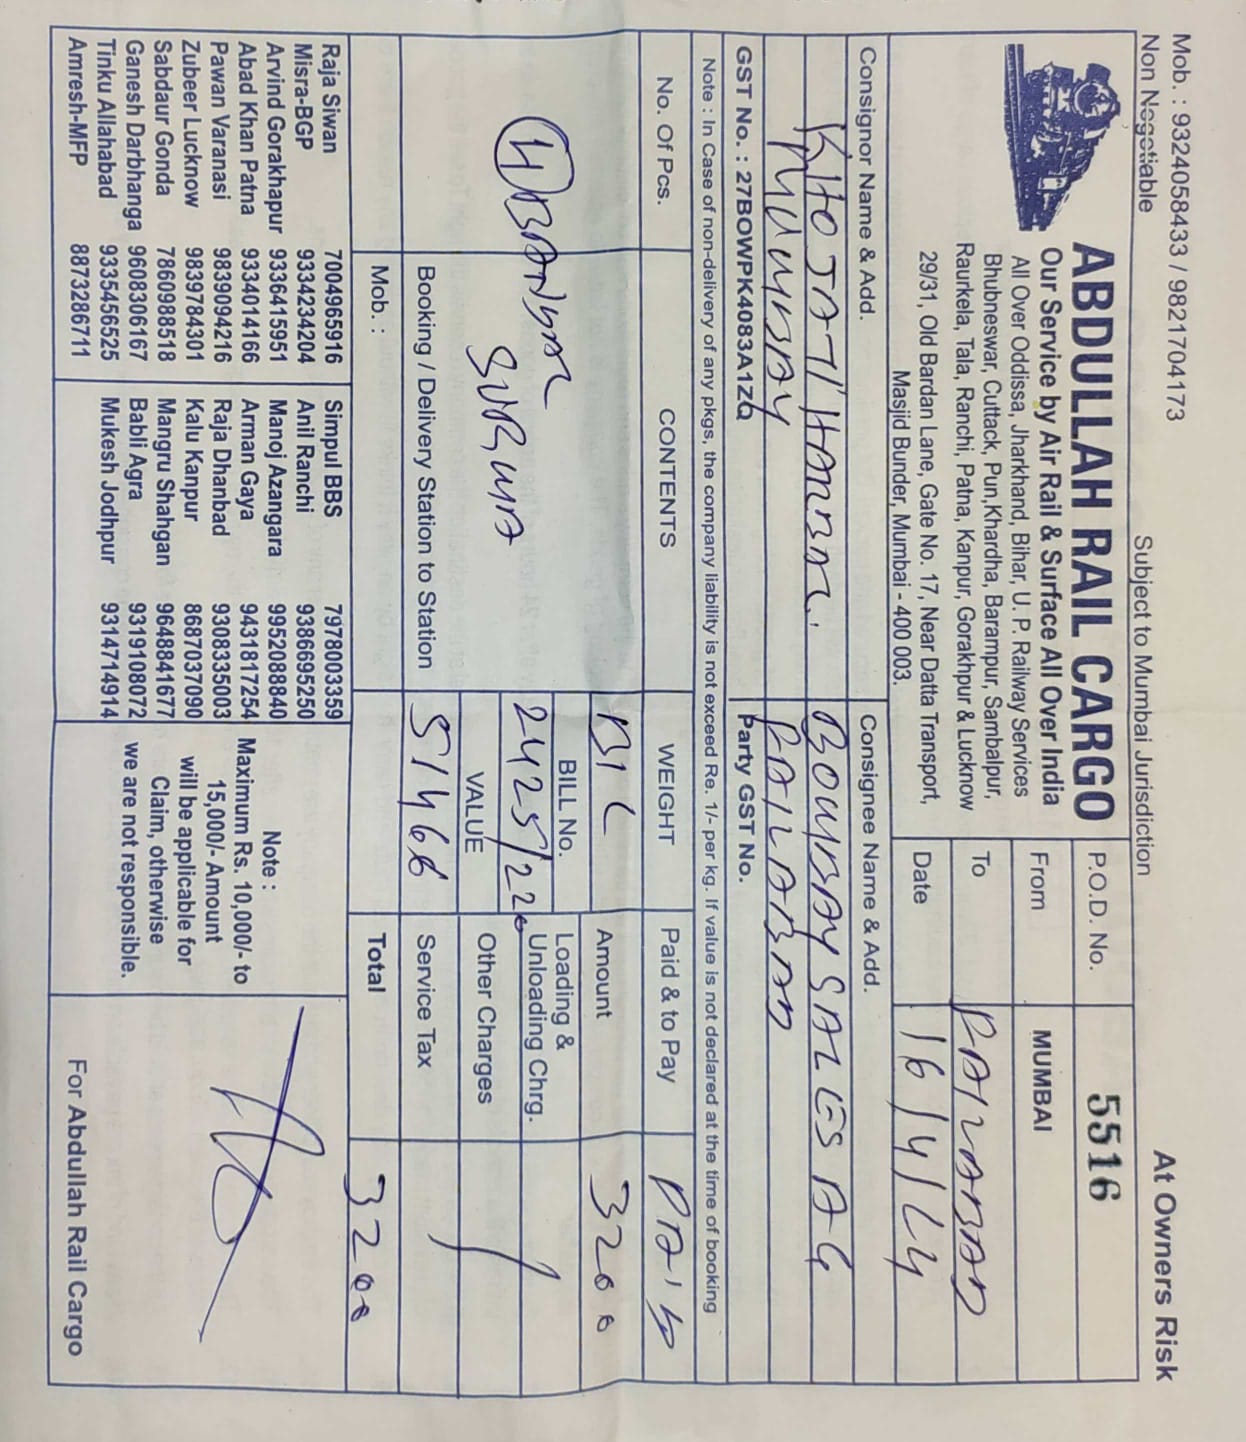 Mob. : 9324058433 / 9821704173
At Owners Risk
Non Negotiable
Subject to Mumbai Jurisdiction
ABDULLAH RAIL CARGO
Our Service by Air Rail & Surface All Over India
All Over Oddissa, Jharkhand, Bihar, U. P. Railway Services
Bhubneswar, Cuttack, Pun,Khardha, Barampur, Sambalpur,
Raurkela, Tala, Ranchi, Patna, Kanpur, Gorakhpur & Lucknow
29/31, Old Bardan Lane, Gate No. 17, Near Datta Transport,
Masjid Bunder, Mumbai - 400 003.
P.O.D. No. 5516
From MUMBAI
To
Date 16/4/24
Consignor Name & Add.
KHOJATI
MUMBAY
Consignee Name & Add.
BOMBAY SALES AG
GST No. : 27BOWPK4083A1ZQ
Party GST No.
Note : In Case of non-delivery of any pkgs, the company liability is not exceed Re. 1/- per kg. If value is not declared at the time of booking
No. Of Pcs. CONTENTS WEIGHT Paid & to Pay PAID
4
SURMA
Amount 3200
BILL No.
2425/220
Loading &
Unloading Chrg.
VALUE
51466
Other Charges
Booking / Delivery Station to Station
Service Tax
Mob. :
Total 3200
Raja Siwan 7004965916
Misra-BGP 9334234204
Arvind Gorakhapur 9336415951
Abad Khan Patna 9334014166
Pawan Varanasi 9839094216
Zubeer Lucknow 9839784301
Sabdaur Gonda 7860988518
Ganesh Darbhanga 9608306167
Tinku Allahabad 9335456525
Amresh-MFP 8873286711
Simpul BBS 7978003359
Anil Ranchi 9386695250
Manoj Azangara 9952088840
Arman Gaya 9431817254
Raja Dhanbad 9308335003
Kalu Kanpur 8687037090
Mangru Shahgan 9648841677
Babli Agra 9319108072
Mukesh Jodhpur 9314714914
Note :
Maximum Rs. 10,000/- to
15,000/- Amount
will be applicable for
Claim, otherwise
we are not responsible.
For Abdullah Rail Cargo